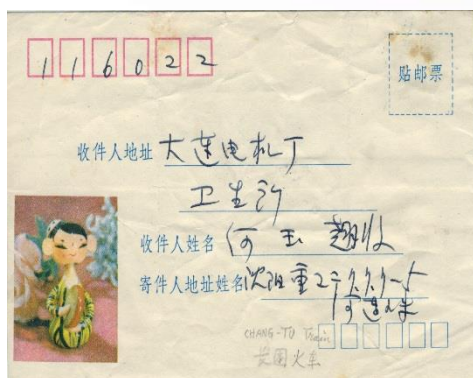 116022
贴邮票
收件人地址 大连电机厂
卫生所
收件人姓名 何玉翘收
寄件人地址姓名 沈阳重工
CHANG-TU Train
火车